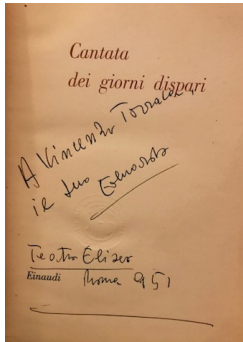 Cantata
dei giorni dispari
A Vincenzo Torraca
il suo Eduardo
Teatro Eliseo
Einaudi Roma 951